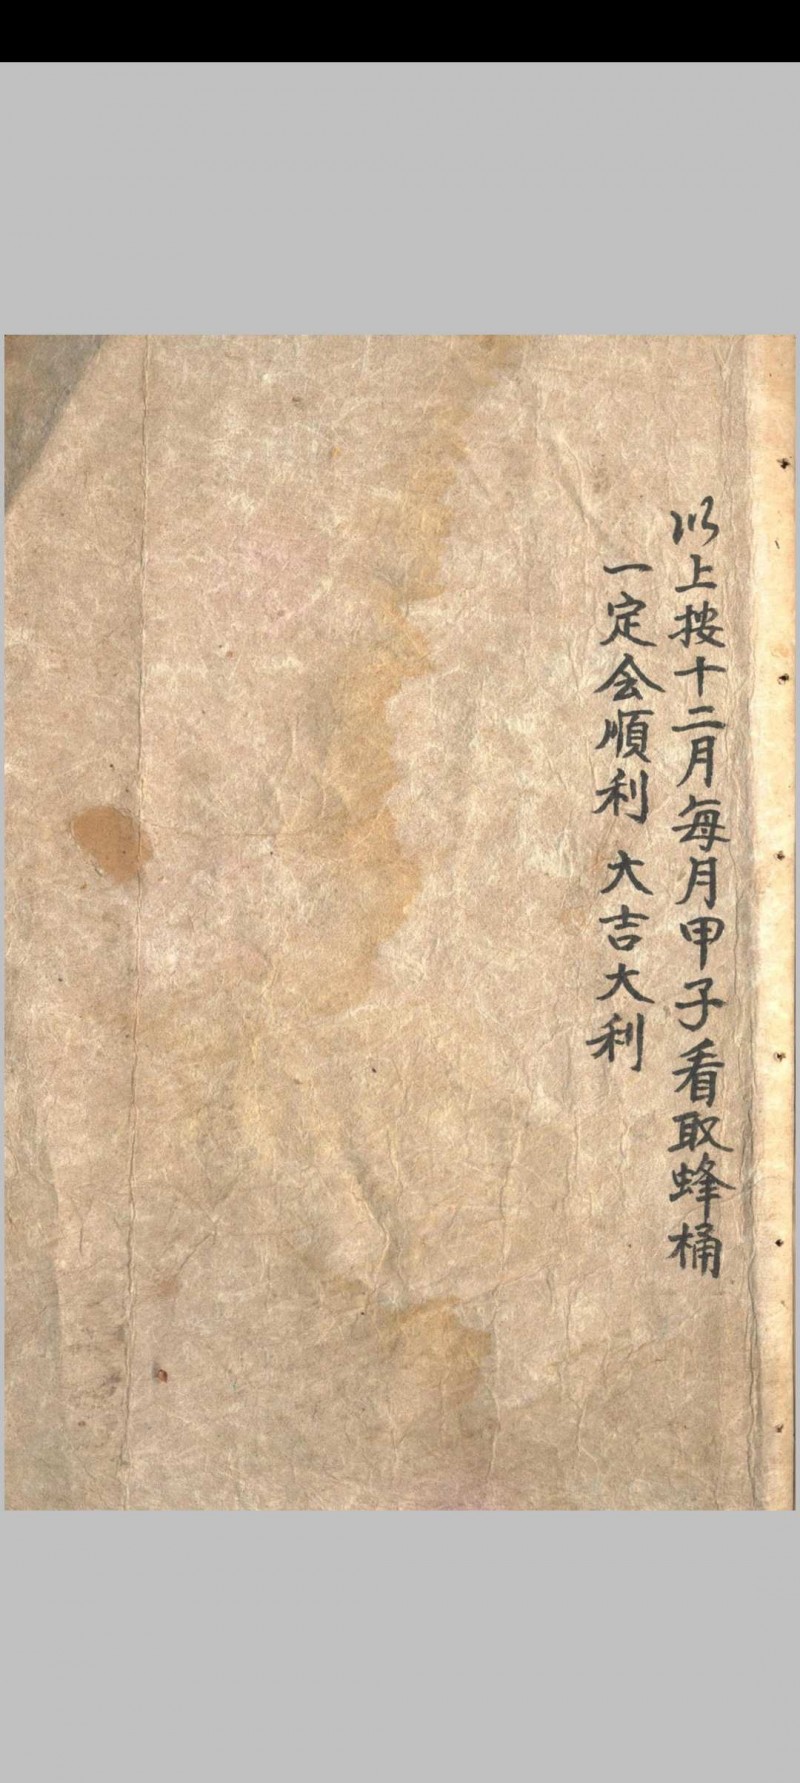 以上按十二月每月甲子看取蜂桶
一定会順利 大吉大利